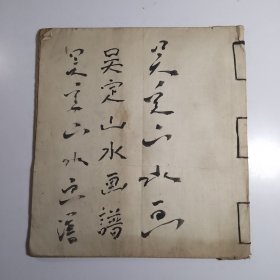 吴定山水画
吴定山水画譜
吴定山水画譜